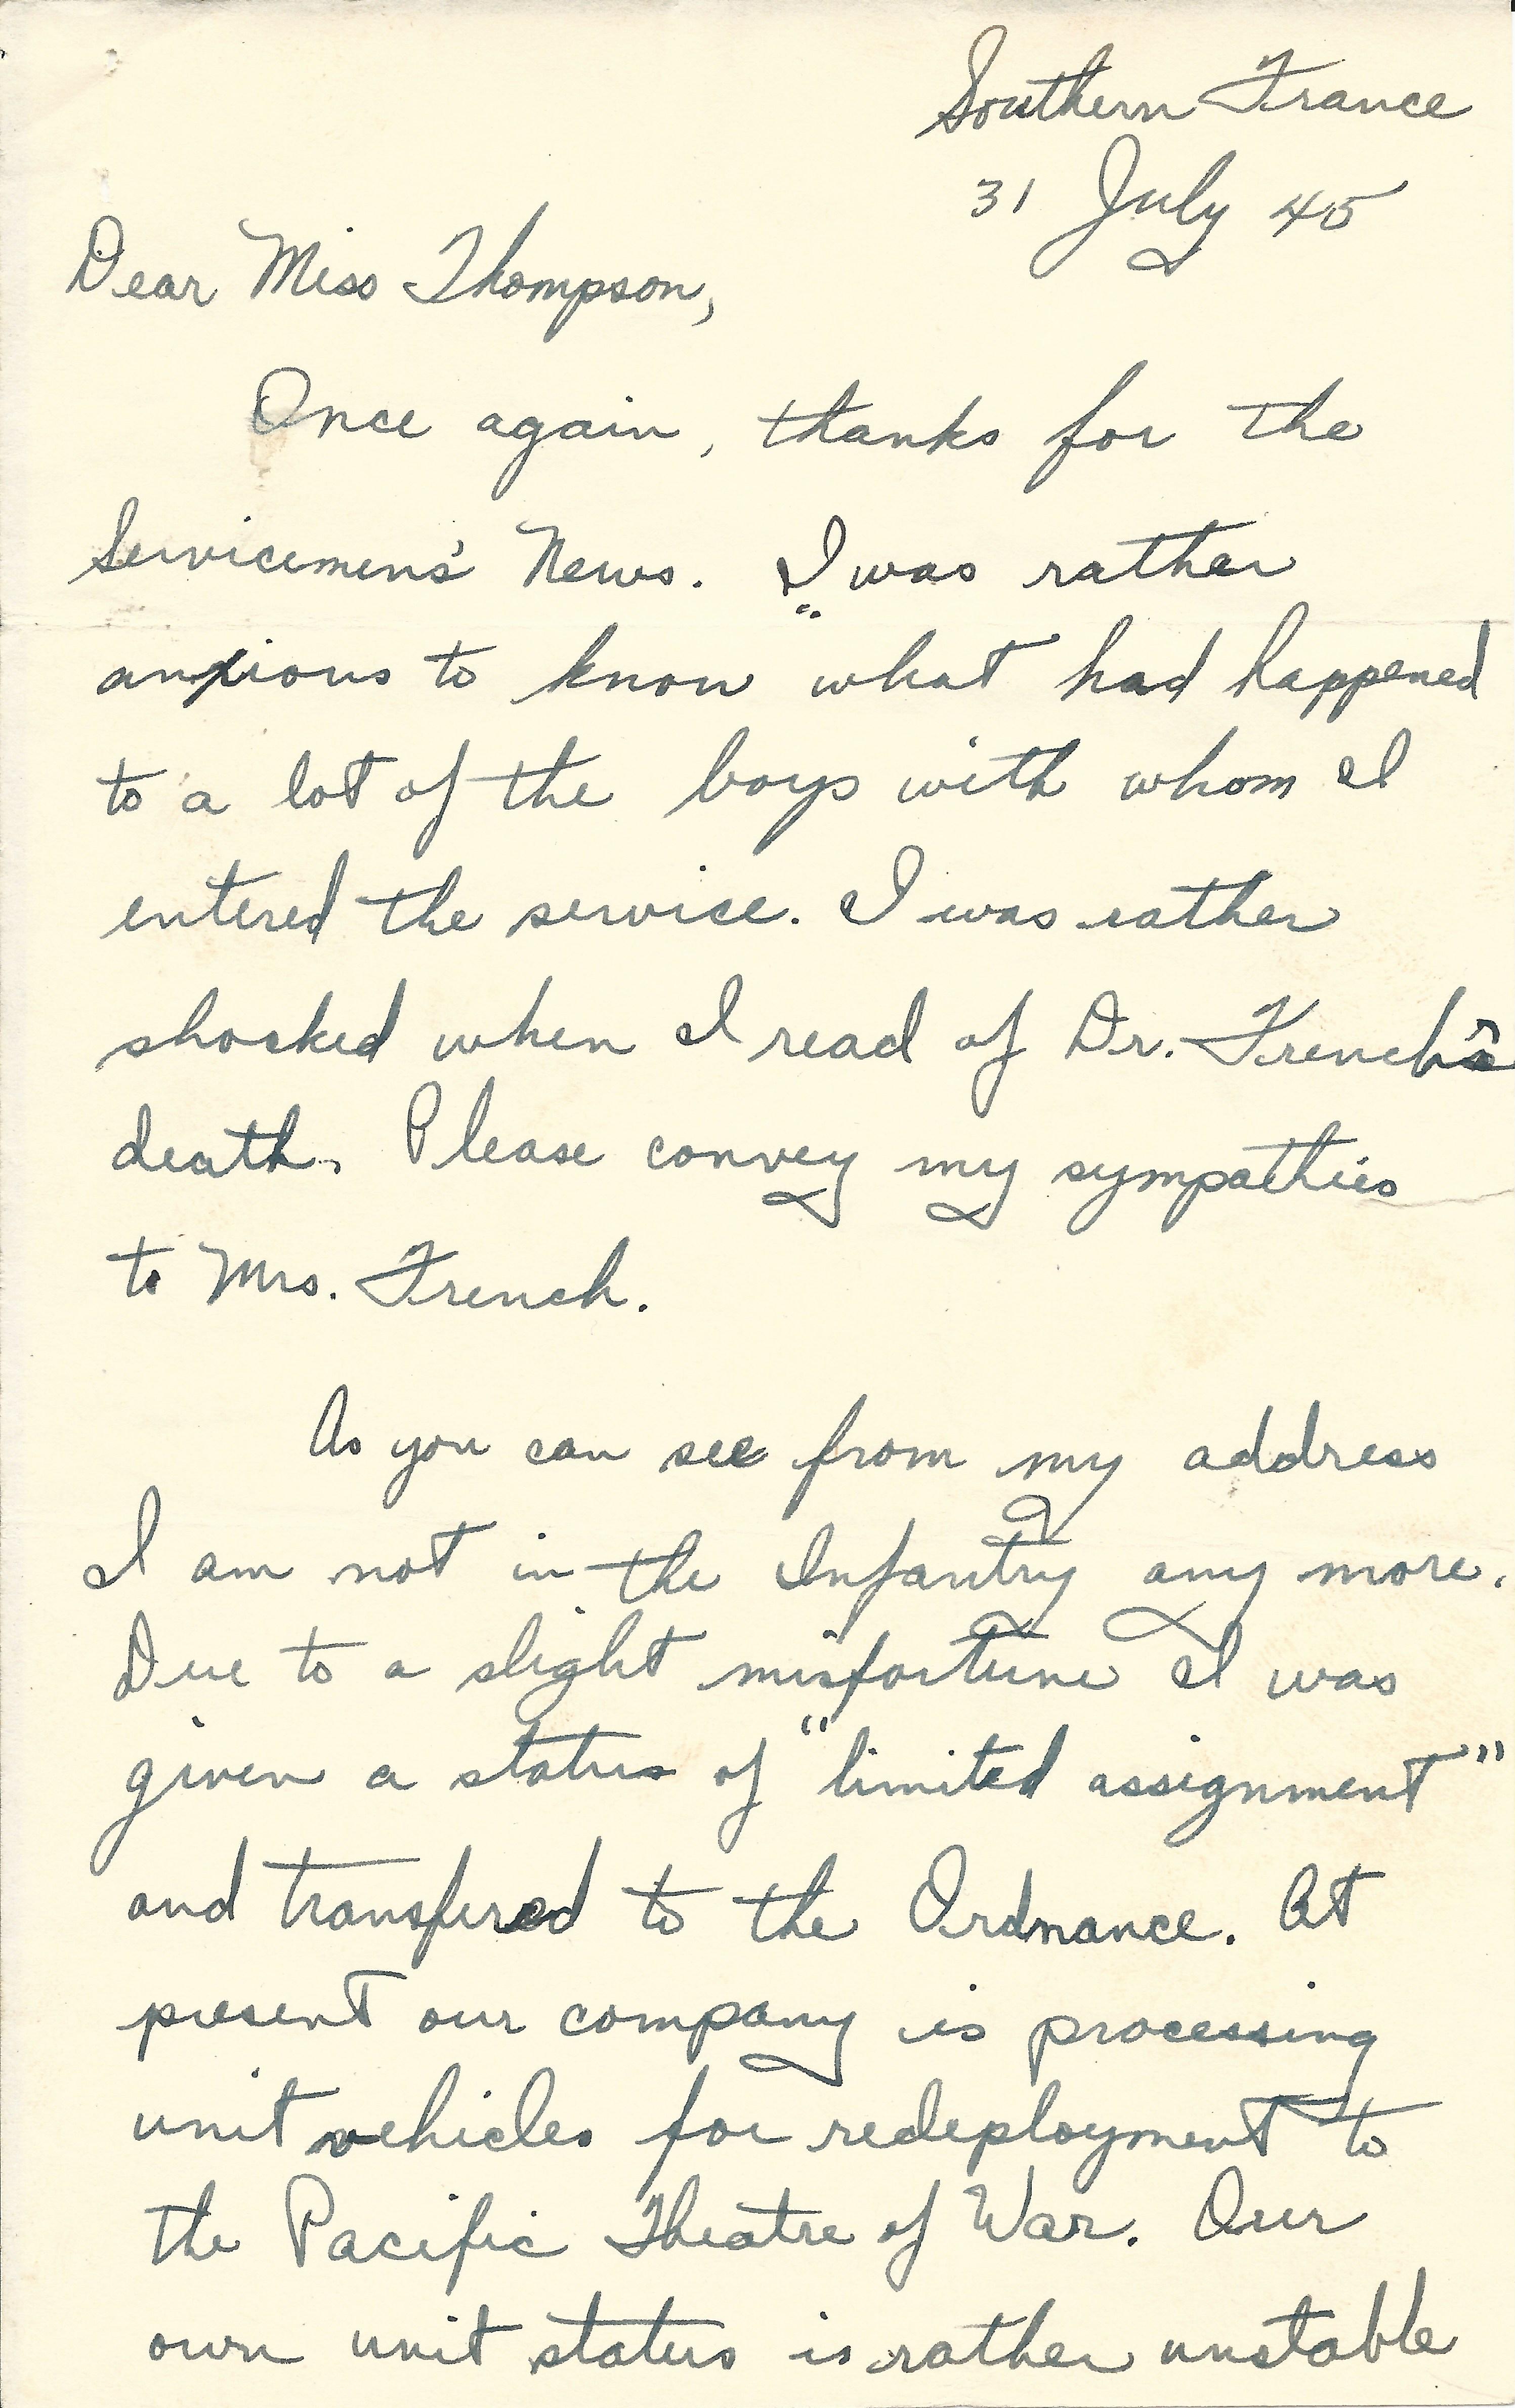 Southern France
31 July 45
Dear Miss Thompson,
Once again, thanks for the
Servicemen's News. I was rather
anxious to know what had happened
to a lot of the boys with whom I
entered the service. I was rather
shocked when I read of Dr. French's
death. Please convey my sympathies
to Mrs. French.
As you can see from my address
I am not in the Infantry any more.
Due to a slight misfortune I was
given a status of "limited assignment"
and transfered to the Ordnance. At
present our company is processing
unit vehicles for redeployment to
the Pacific Theatre of War. Our
own unit status is rather unstable